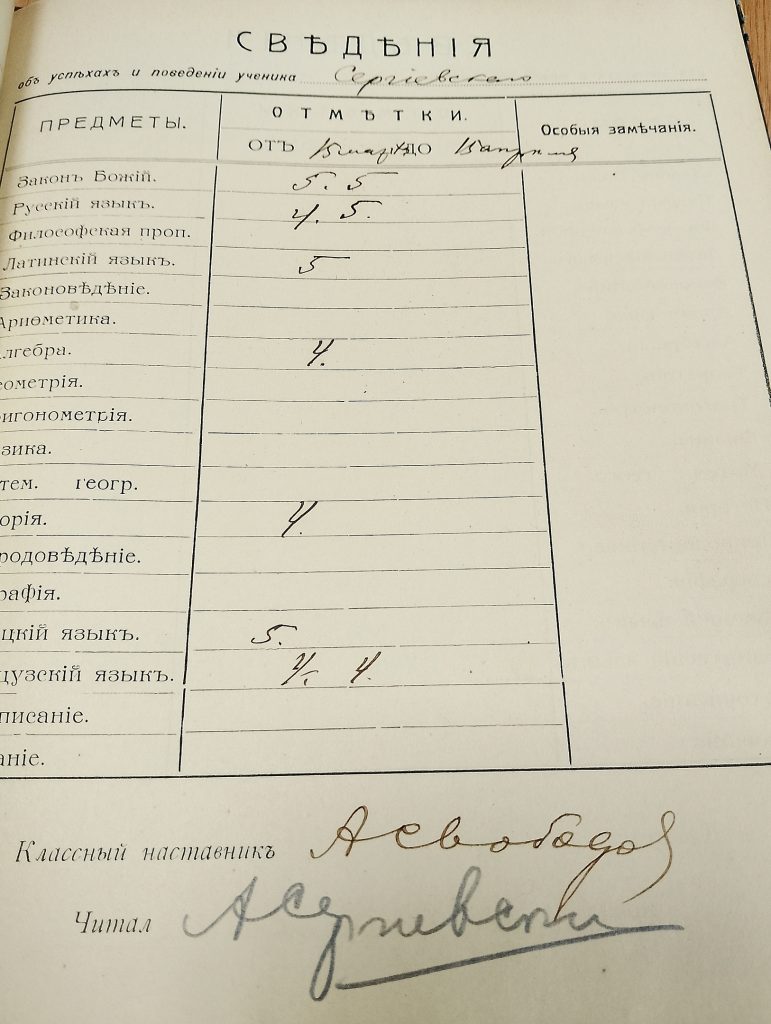 СВѢДѢНІЯ
объ успѣхахъ и поведеніи ученика Сергіевскаго
ПРЕДМЕТЫ.
ОТМѢТКИ.
Особыя замѣчанія.
ОТЪ 15 марта ДО 15 апрѣля
Законъ Божій. 5. 5
Русскій языкъ. 4. 5.
Философская проп.
Латинскій языкъ. 5
Законовѣдѣніе.
Ариѳметика.
лгебра. 4.
еометрія.
игонометрія.
зика.
тем. геогр.
орія. 4.
родовѣдѣніе.
рафія.
цкій языкъ. 5.
цузскій языкъ. 4. 4.
писаніе.
аніе.
Классный наставникъ
Читал А Сергиевский